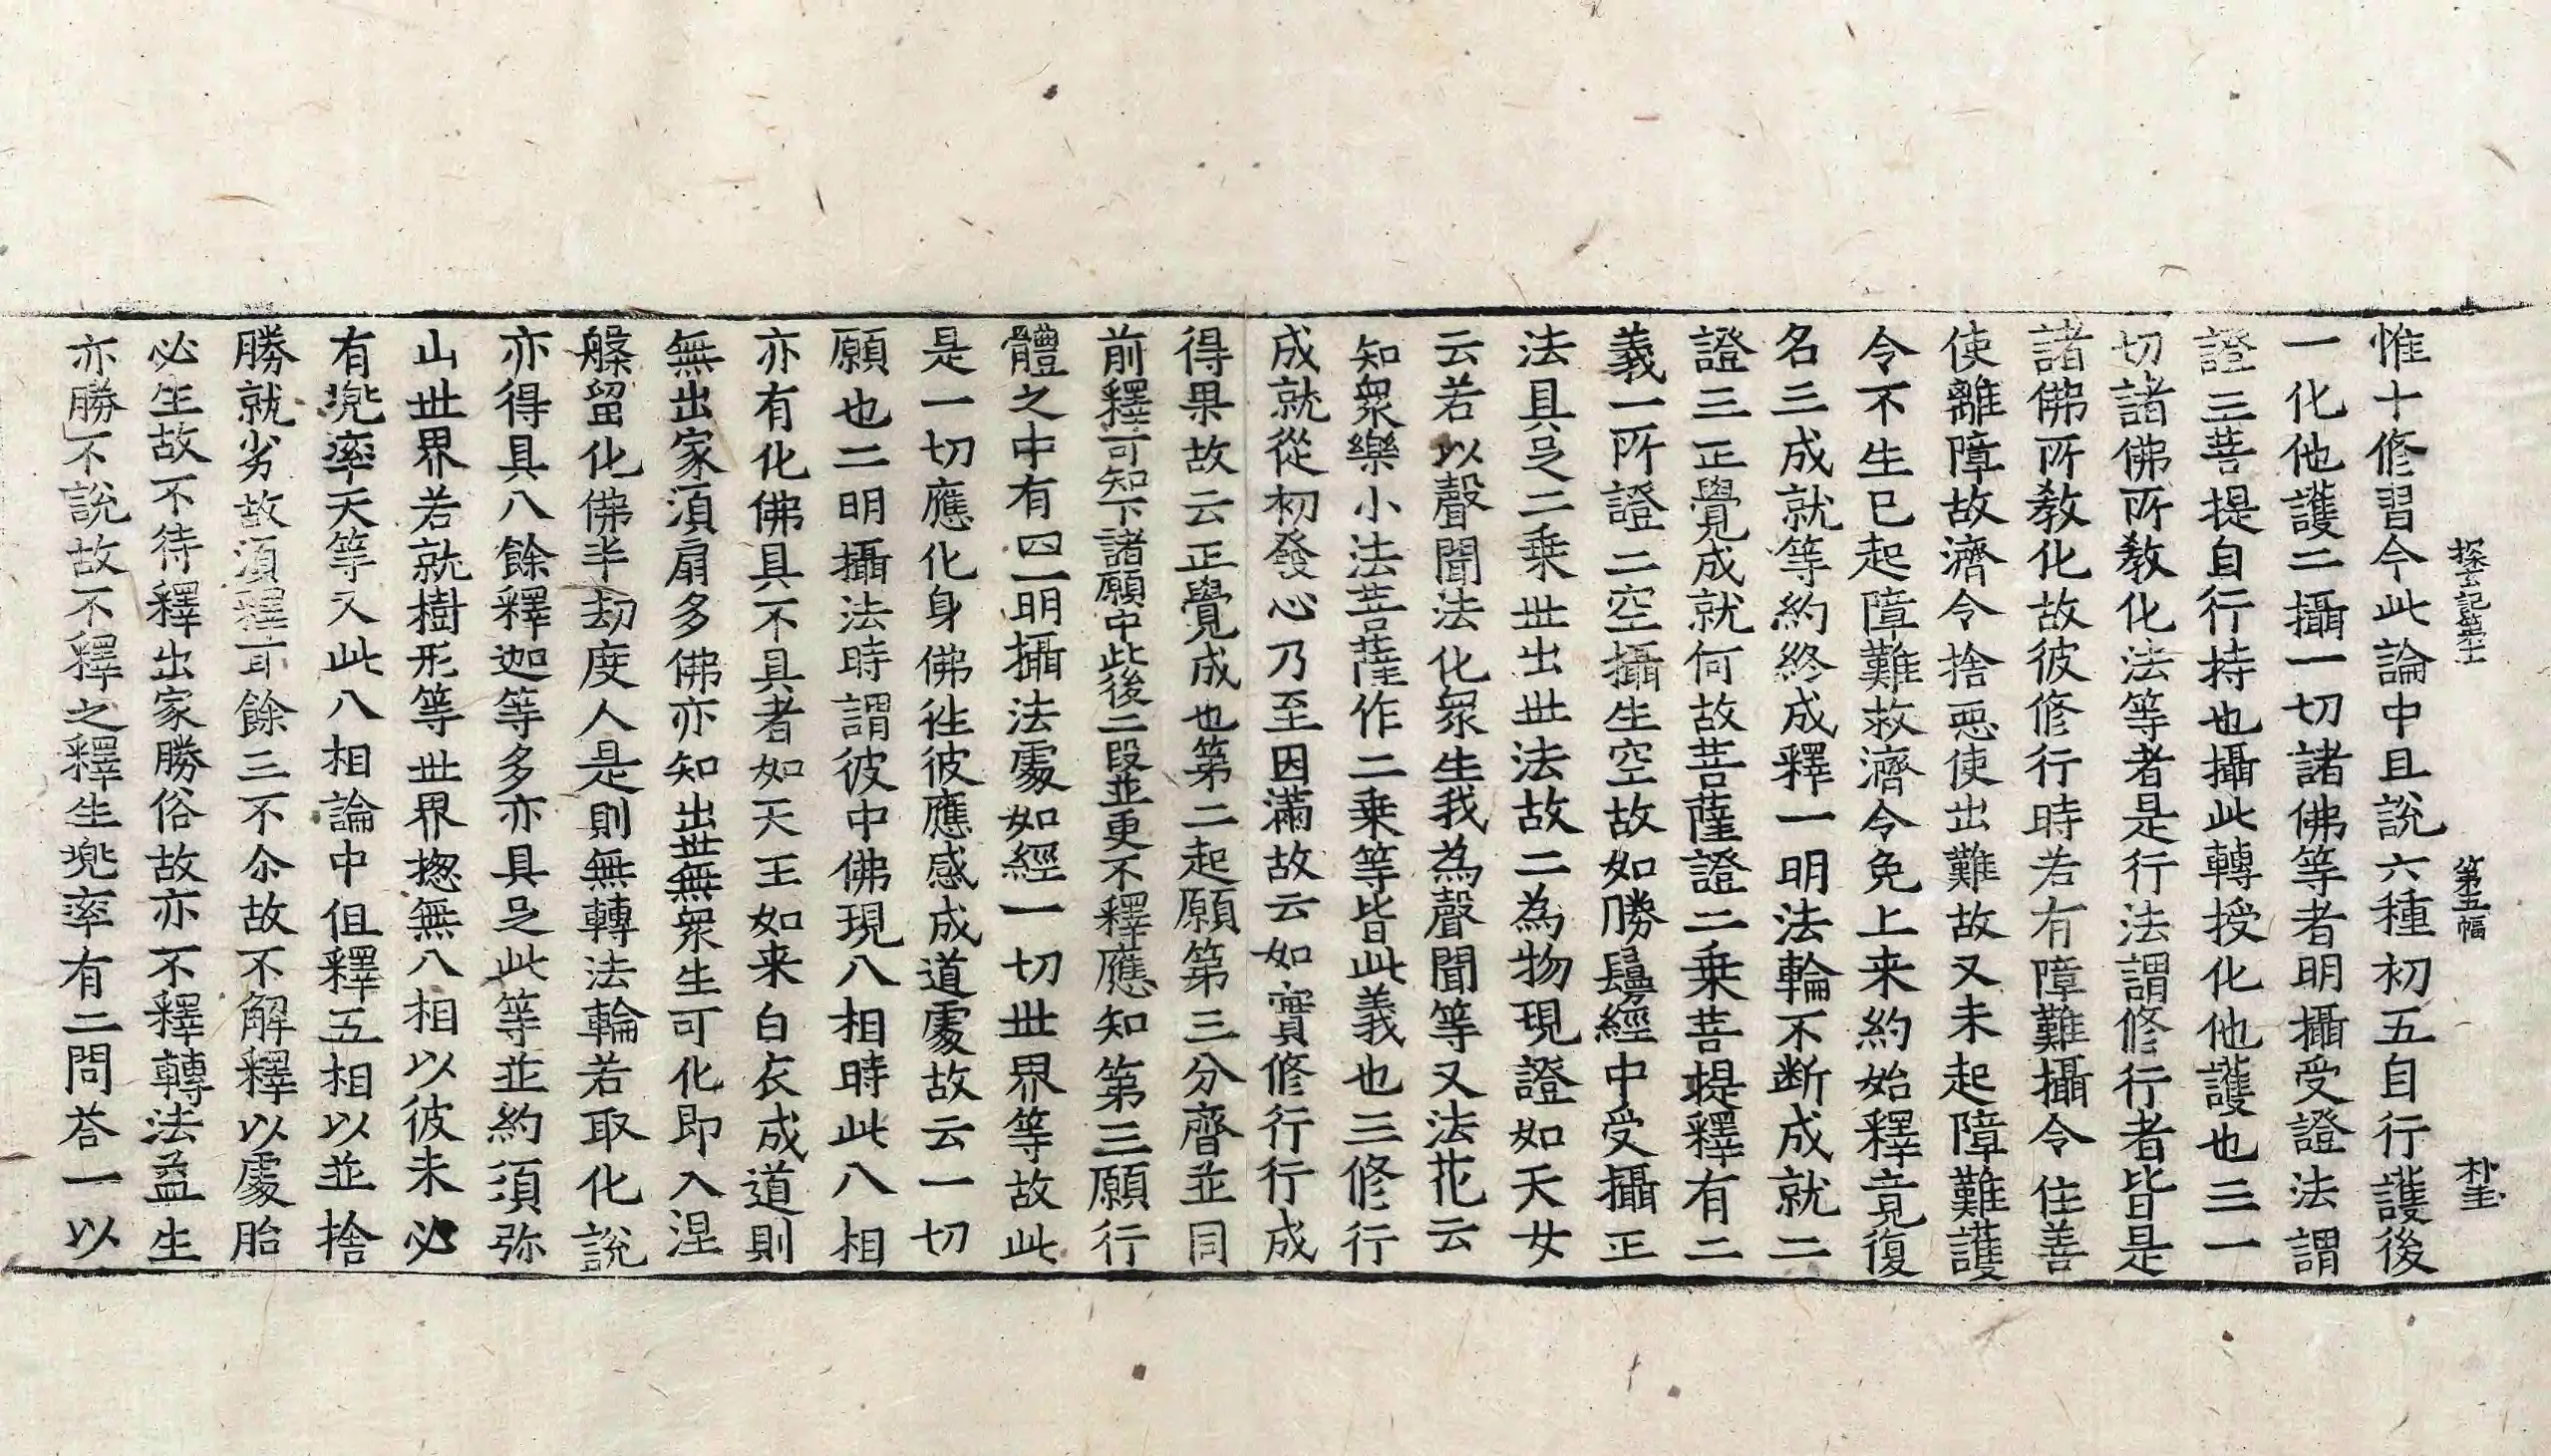 探玄記第十一 第五幅 朴圭
惟十修習今此論中且說六種初五自行護後
一化他護二攝一切諸佛等者明攝受證法謂
證三菩提自行持也攝此轉授化他護也三一
切諸佛所教化法等者是行法謂修行者皆是
諸佛所教化故彼修行時若有障難攝令住善
使離障故濟令捨惡使出難故又未起障難護
令不生已起障難救濟令免上来約始釋竟復
名三成就等約終成釋一明法輪不断成就二
證三正覺成就何故菩薩證二乗菩提釋有二
義一所證二空攝生空故如勝鬘經中受攝正
法具足二乗世出世法故二為物現證如天女
云若以聲聞法化衆生我為聲聞等又法花云
知衆樂小法菩薩作二乗等皆此義也三修行
成就從初發心乃至因滿故云如實修行行成
得果故云正覺成也第二起願第三分齊並同
前釋可知下諸願中此後二段並更不釋應知第三願行
體之中有四一明攝法處如經一切世界等故此
是一切應化身佛徃彼應感成道處故云一切
願也二明攝法時謂彼中佛現八相時此八相
亦有化佛具不具者如天王如来白衣成道則
無出家湏扇多佛亦知出世無衆生可化即入涅
槃留化佛半劫度人是則無轉法輪若取化說
亦得具八餘釋迦等多亦具足此等並約須弥
山世界若就樹形等世界揔無八相以彼未必
有兜率天等又此八相論中但釋五相以並捨
勝就劣故湏釋耳餘三不尒故不解釋以處胎
必生故不待釋出家勝俗故亦不釋轉法益生
亦勝不說故不釋之釋生兜率有二問荅一以